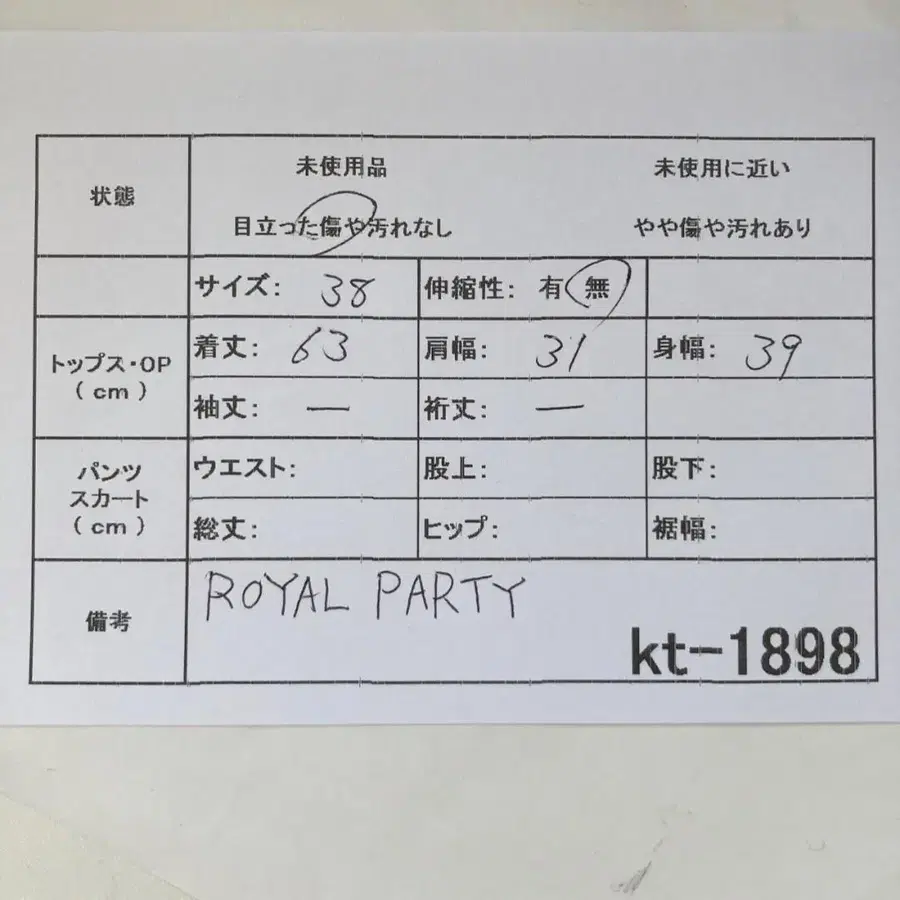 状態
未使用品 未使用に近い
目立った傷や汚れなし やや傷や汚れあり
サイズ: 38 伸縮性: 有 無
トップス・OP
(cm)
着丈: 63 肩幅: 31 身幅: 39
袖丈: — 裄丈: —
パンツ
スカート
(cm)
ウエスト: 股上: 股下:
総丈: ヒップ: 裾幅:
備考
ROYAL PARTY
kt-1898